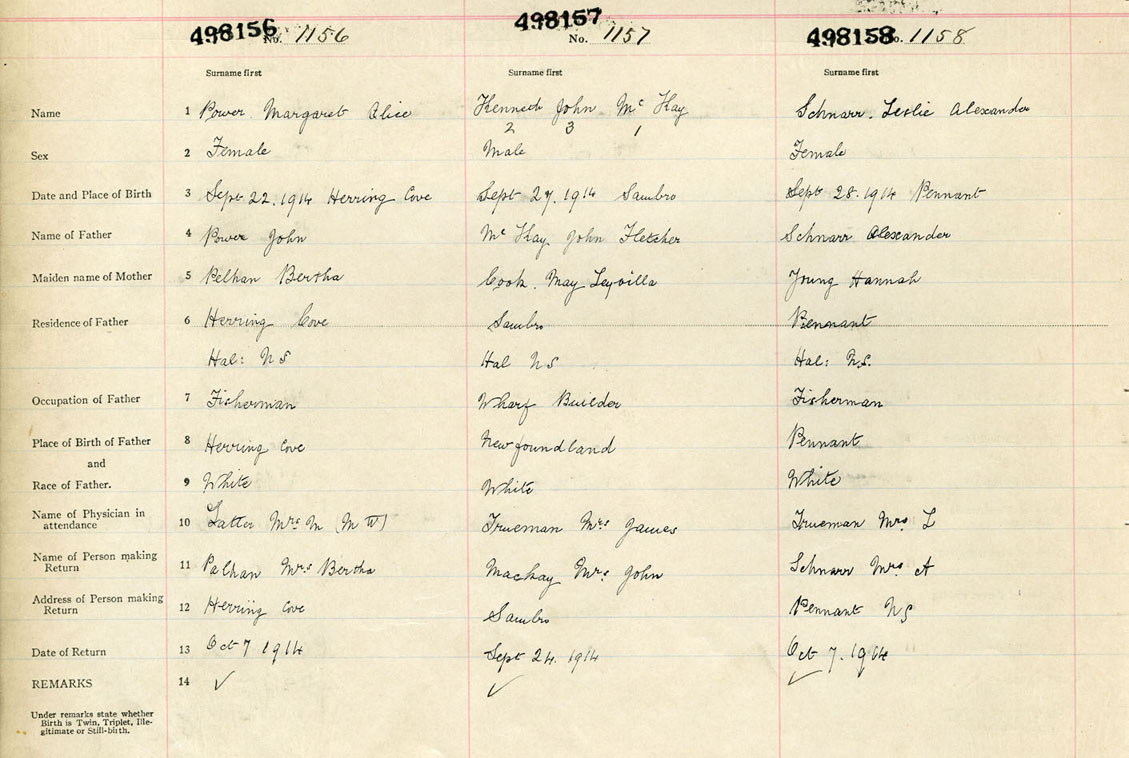 498156 498157 498158
No. 1156 No. 1157 No. 1158
Surname first Surname first Surname first
Name 1 Power Margaret Alice Kenneth John Mc Kay Schnarr. Leslie Alexander
2 3 1
Sex 2 Female Male Female
Date and Place of Birth 3 Sept 22. 1914 Herring Cove Sept 27. 1914 Sambro Sept 28. 1914 Pennant
Name of Father 4 Power John Mc Kay. John Fletcher Schnarr Alexander
Maiden name of Mother 5 Pelhan Bertha Cook. May Young Hannah
Residence of Father 6 Herring Cove Sambro Pennant
Hal: NS Hal NS Hal: N.S.
Occupation of Father 7 Fisherman Wharf Builder Fisherman
Place of Birth of Father 8 Herring Cove Newfoundland Pennant
and
Race of Father. 9 White White White
Name of Physician in
attendance 10 Latter Mrs M (M W) Trueman Mrs James Trueman Mrs L
Name of Person making
Return 11 Palhan Mrs Bertha Mackay Mrs John Schnarr Mrs A
Address of Person making
Return 12 Herring Cove Sambro Pennant NS
Date of Return 13 Oct 7 1914 Sept 24. 1914 Oct 7. 1914
REMARKS 14 ✓ ✓ ✓
Under remarks state whether
Birth is Twin, Triplet, Ille-
gitimate or Still-birth.